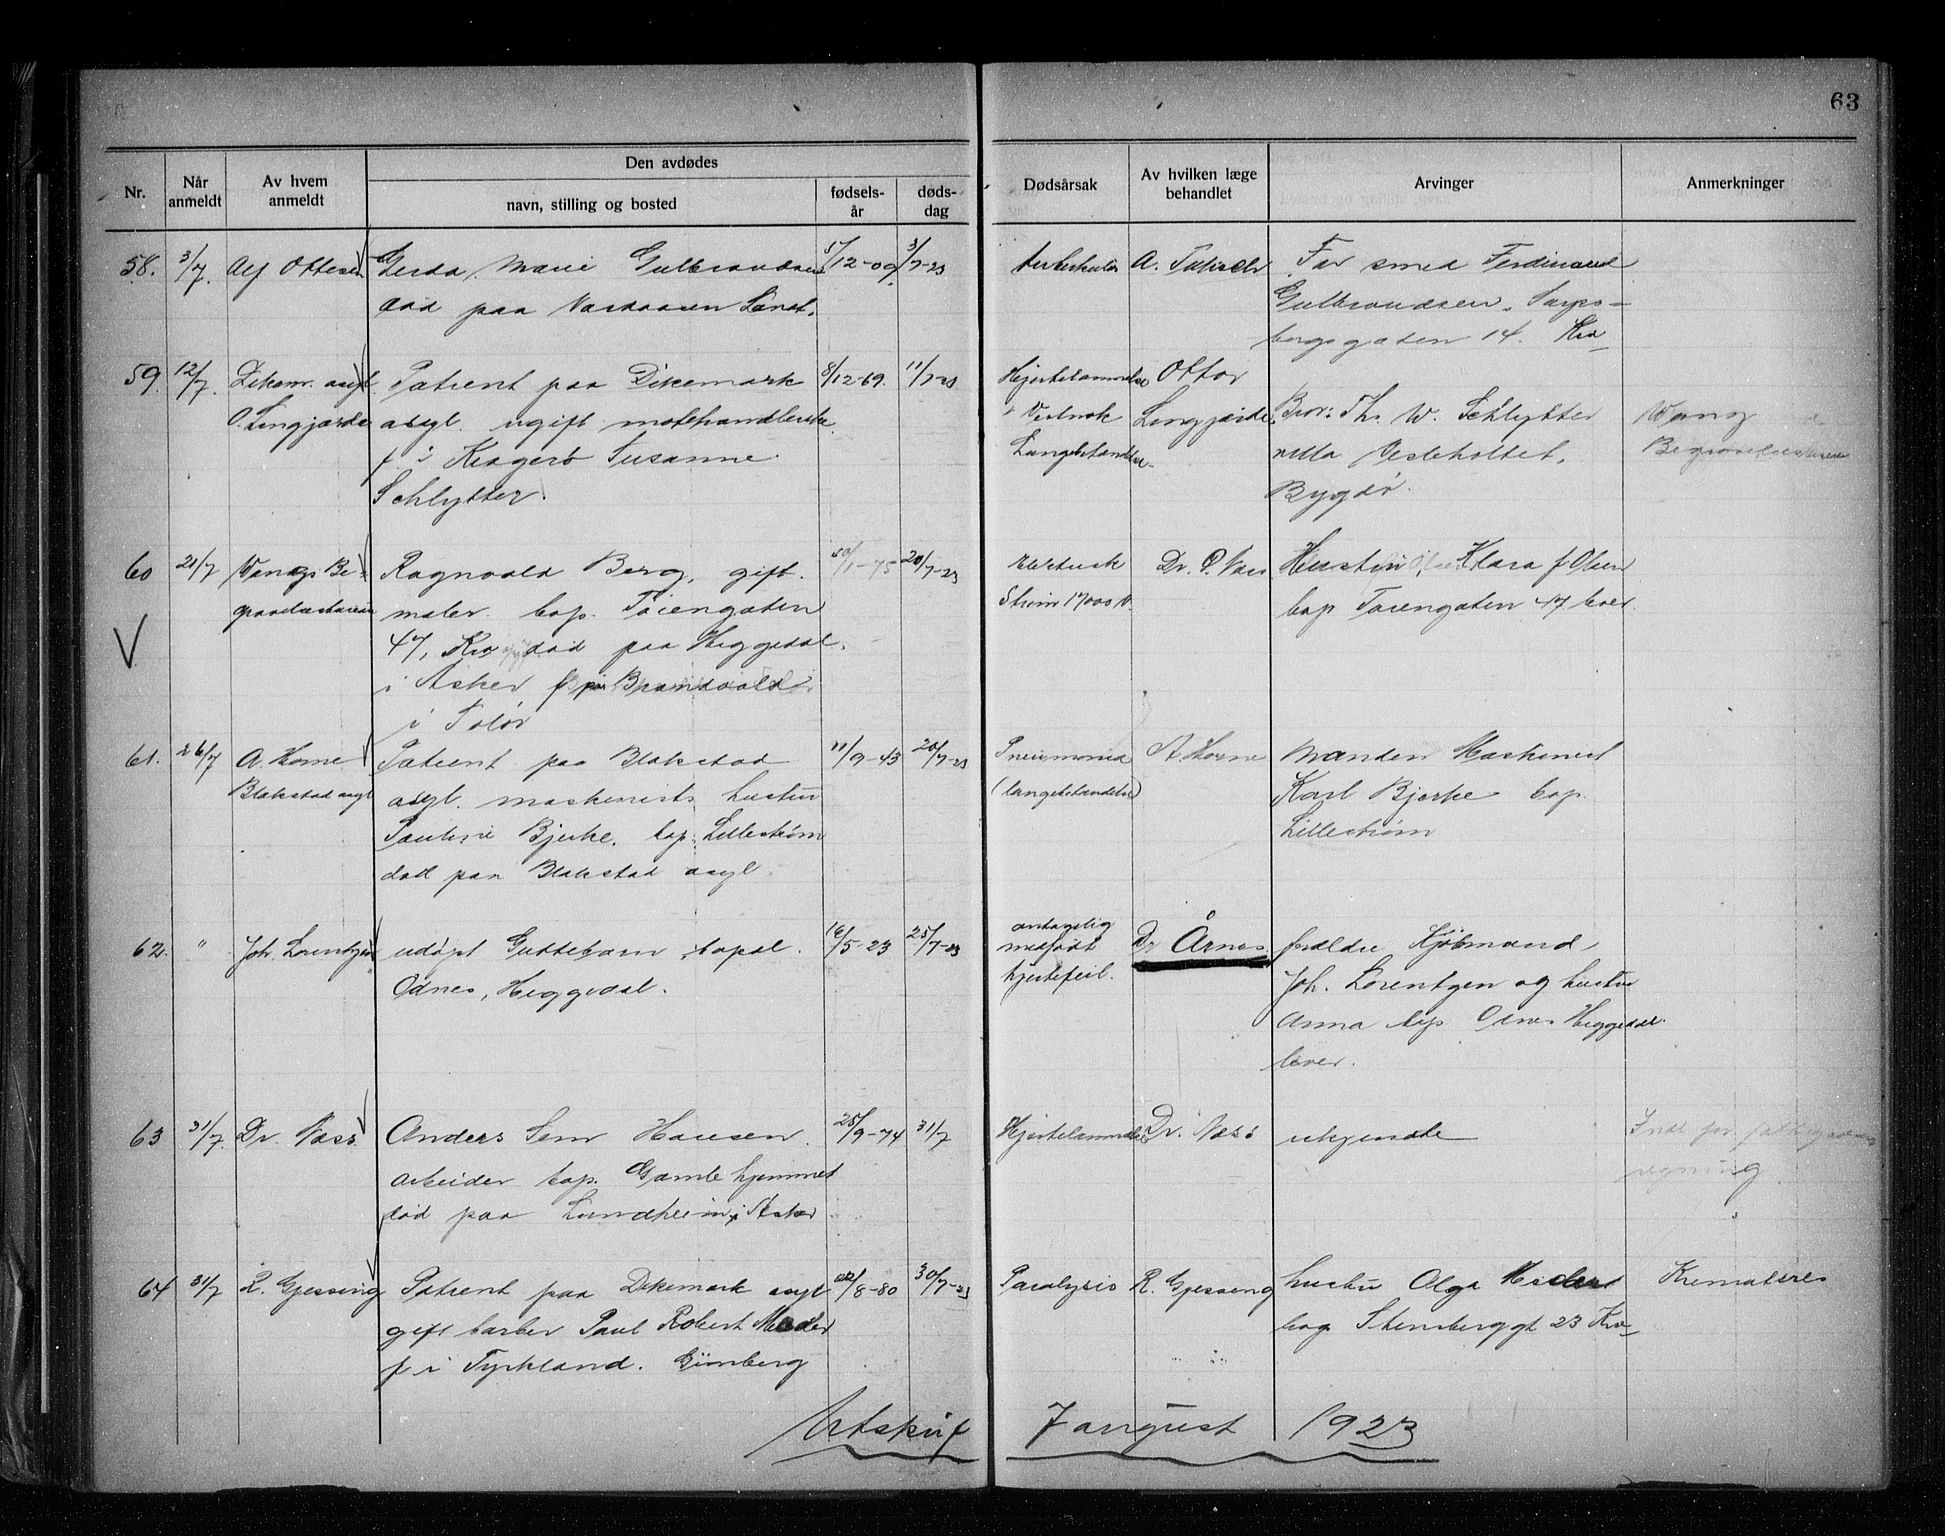 63
Nr.
Når anmeldt
Av hvem anmeldt
Den avdødes
navn, stilling og bosted
fødsels-år
døds-dag
Dødsårsak
Av hvilken læge behandlet
Arvinger
Anmerkninger
58. 3/7. Alf Ottesen Gerda Marie Gulbrandsen 5/12-09. 3/7-23 A. Far smed Ferdinand
død paa Vardaasen Sanat. Gulbrandsen. Sarps-
borggaten 14. Kra
59. 12/7. Dikem. asyl Patient paa Dikemark 8/12-69. 11/7-23 Hjertelammelse Ottar
O. Lingjærde asyl. ugift motehandlerske Lingjærde Bror: Th. W. Schlytter Wang
f i Kragerø Susanne Lungebetændelse villa Vesleholtet, Begravelsesbureau
Schlytter. Bygdø.
60 21/7 Wangs Be- Ragnvald Berg, gift. 1-75 20/7-23 Elektrisk Dr. O. Næss Hustru Klara f Olsen
gravelsesbureau maler. bop. Tøiengaten Strøm 17000 V. bop Tøiengaten 47 lever
47, Kra død paa Heggedal
i Asker f i Brandvold
i Solør
61. 26/7 A. Horne Patient paa Blakstad 11/9-43 20/7-23 Pneumonia A. Horne Manden Maskinist
Blakstad asyl asyl. maskinists hustru (lungebetændelse) Karl Bjerke bop.
Pauline Bjerke. bop: Lillestrøm Lillestrøm
død paa Blakstad asyl
62. " Joh. Lorentzen udøpt Guttebarn, bopæl. 16/5-23 25/7-23 antagelig medfødt hjertefeil. Dr Årnes forældre Kjøbmand
Odnes, Heggedal. Joh. Lorentzen og hustru
Anna bop Odnes Heggedal
lever.
63 31/7. Dr. Næss Anders Sem Hansen. 25/9-74 31/7 Hjertelammelse Dr. Næss ukjendte Ind for fattigvæsenets
arbeider bop. Gamlehjemmet regning
død paa Lundheim i Asker
64 31/7 R. Gjessing Patient paa Dikemark asyl 22/8-80 30/7-23 Paralysis R. Gjessing hustru Olga Krematoret
gift barber Paul Robert bop Stensberggt 23 Kra
f i Tyskland.
Utskrift 7 august 1923